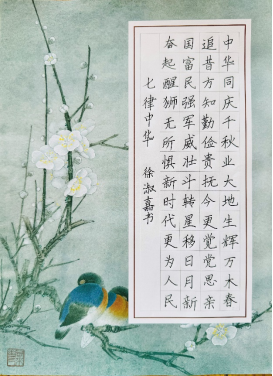 中华同庆千秋业大地生辉万木春
追昔方知勤俭贵抚今更觉党思亲
国富民强军威壮斗转星移日月新
奋起醒狮无所惧新时代更为人民
七律中华 徐淑嘉书